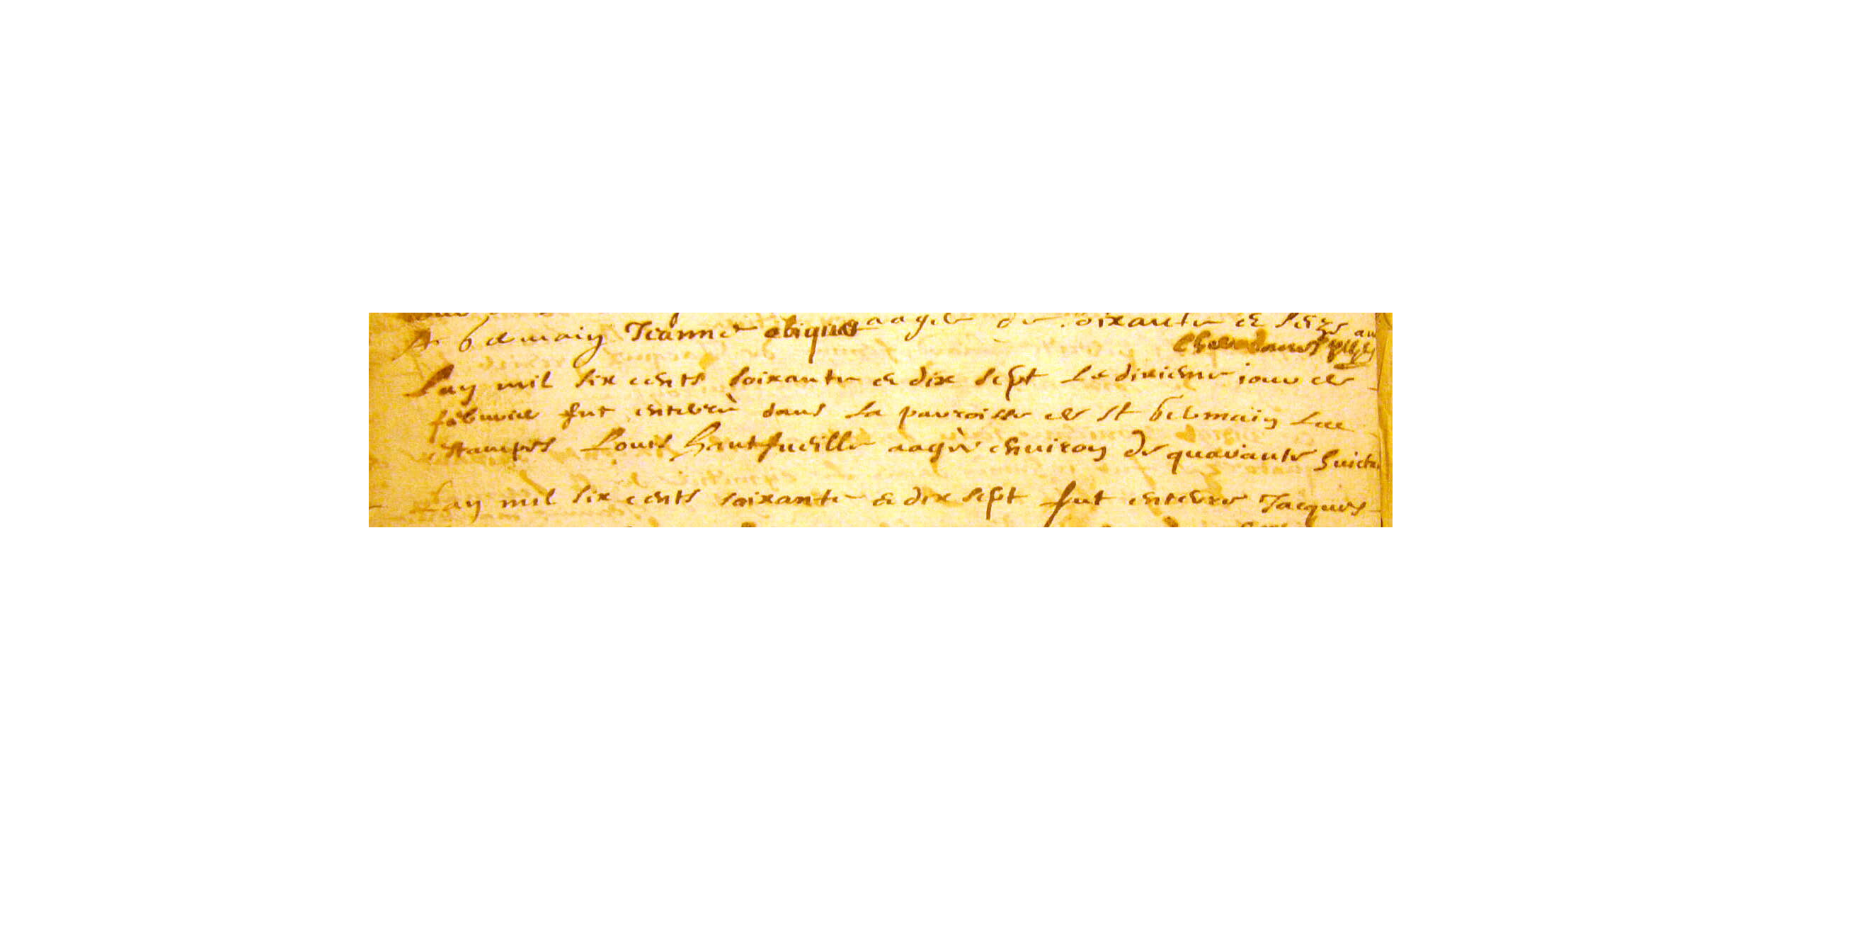 St Germain Jeanne aagée de soixante et seize
Lan mil six cents soixante et dix sept le dixiesme iour de
febvrier fut enterré dans la parroisse de St Germain Les
estampes Louis Hautfueille aagé environ de quarante huict
Lan mil six cents soixante et dix sept fut enterré Jacques